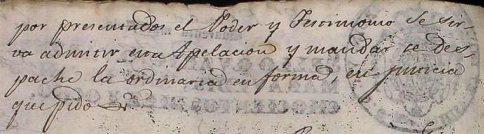 por presentados el Poder y Testimonio se sir
va admitir esta Apelacion y mandar se des
pache la ordinaria en forma, en justicia
que pido &